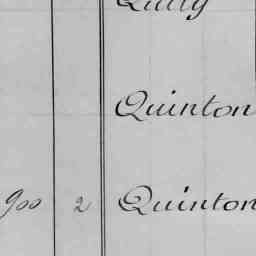 Quincy
Quinton
900 2 Quinton